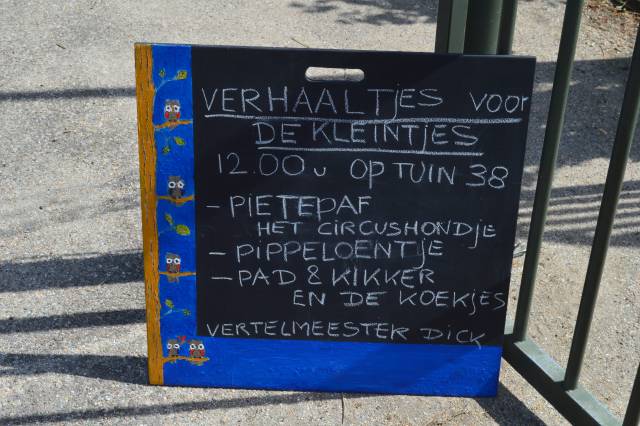 VERHAALTJES VOOR
DE KLEINTJES
12.00 u OP TUIN 38
- PIETEPAF
HET CIRCUSHONDJE
- PIPPELOENTJE
- PAD & KIKKER
EN DE KOEKJES
VERTELMEESTER DICK